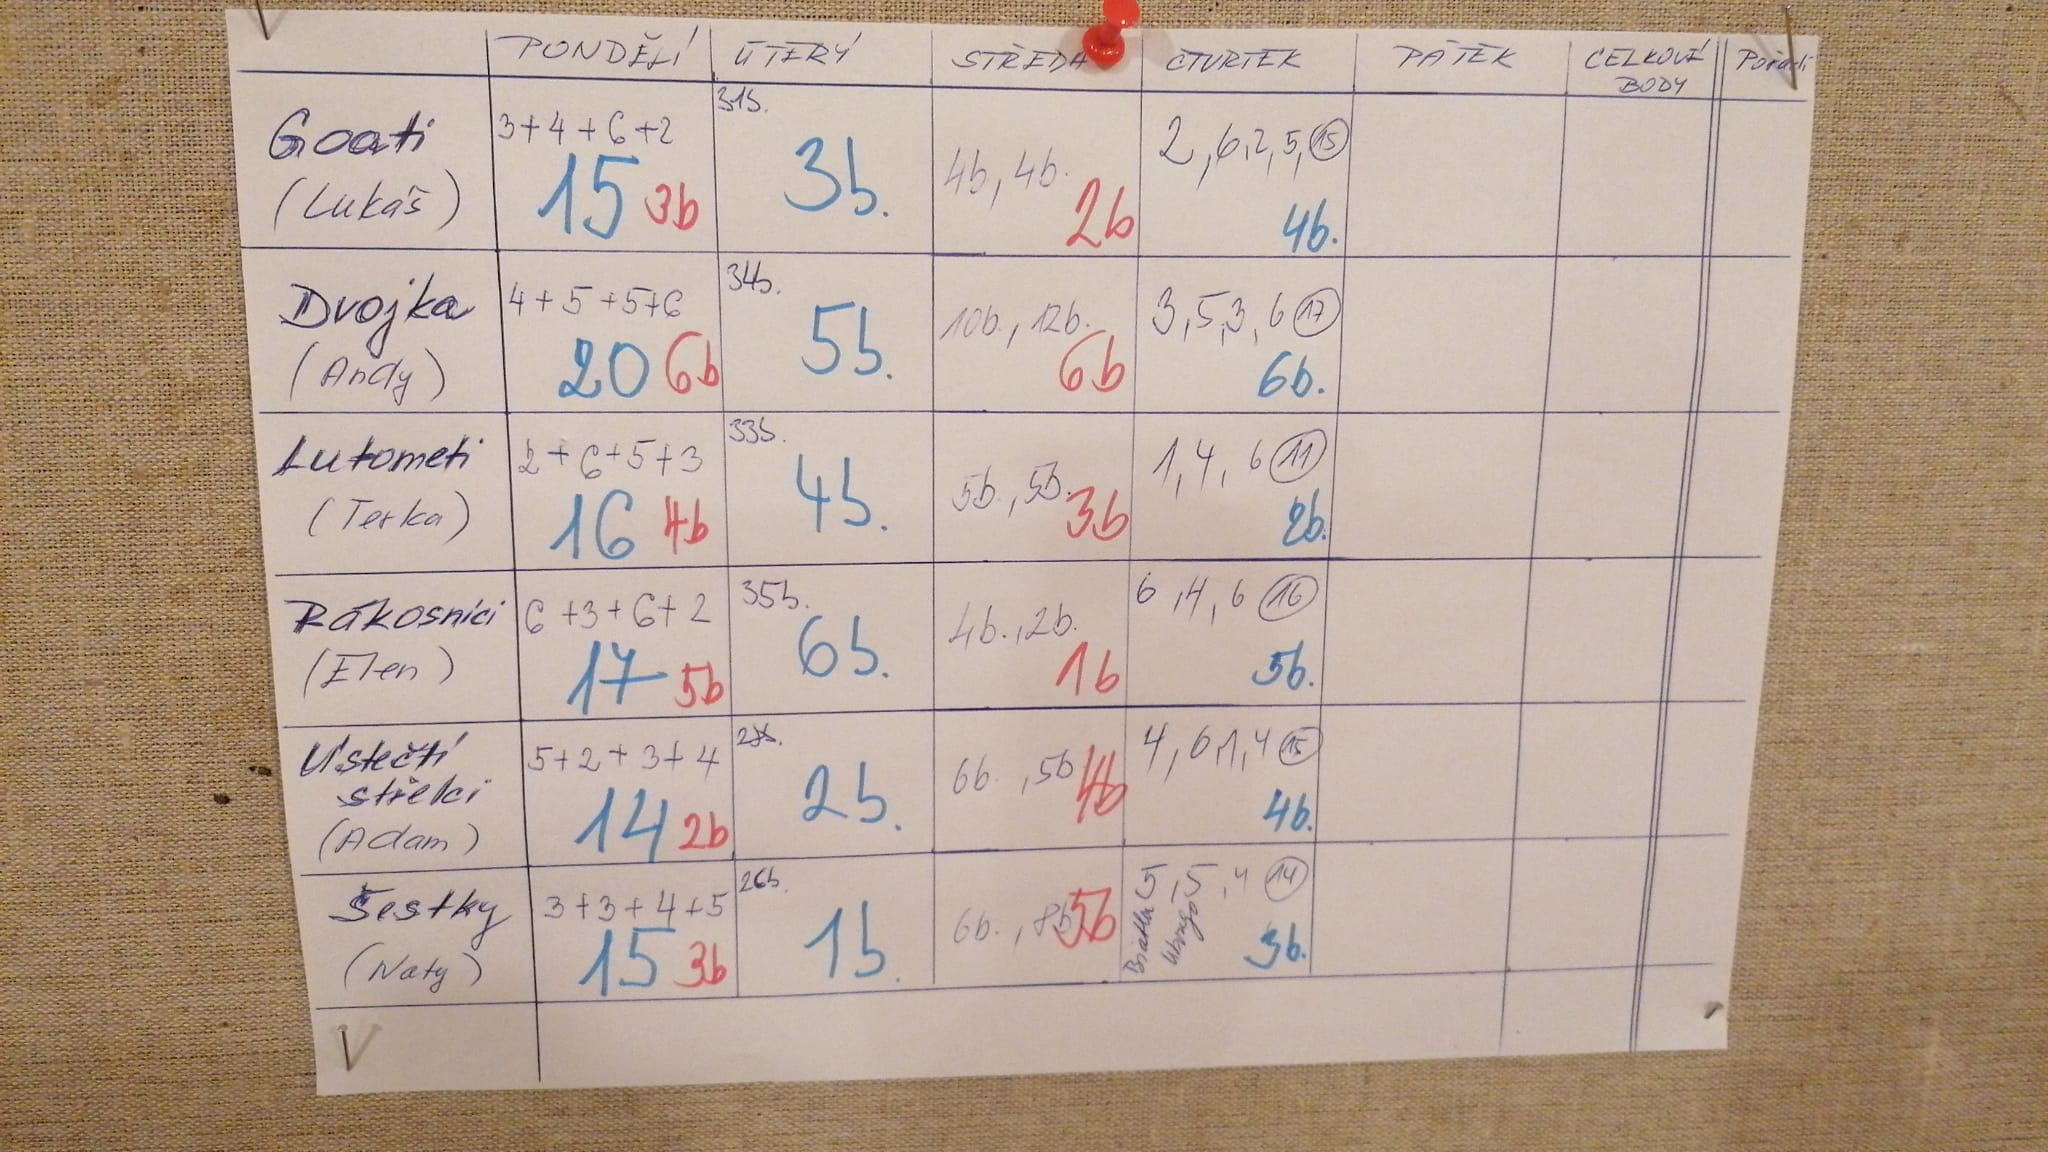 PONDĚLÍ ÚTERÝ STŘEDA ČTVRTEK PÁTEK CELKOVÉ BODY
Goati (Lukáš)
3+4+6+2
15 3b
31b.
3b.
4b, 4b.
2b
2, 6, 2, 5, 15
4b.
Dvojka (Andy)
4+5+5+6
20 6b
34b.
5b.
10b., 12b.
6b
3, 5, 3, 6 17
6b.
Lutometi (Terka)
2+6+5+3
16 4b
33b.
4b.
5b., 5b.
3b
1, 4, 6 11
2b.
Rákosníci (Elen)
6+3+6+2
17 5b
35b.
6b.
4b., 2b.
1b
6, 4, 6 16
5b.
Ústečtí střelci (Adam)
5+2+3+4
14 2b
2b.
6b., 5b
4b
4, 6, 1, 4 15
4b.
Šestky (Naty)
3+3+4+5
15 3b
26b.
1b.
6b., 8b
5b
5, 5, 4 14
3b.